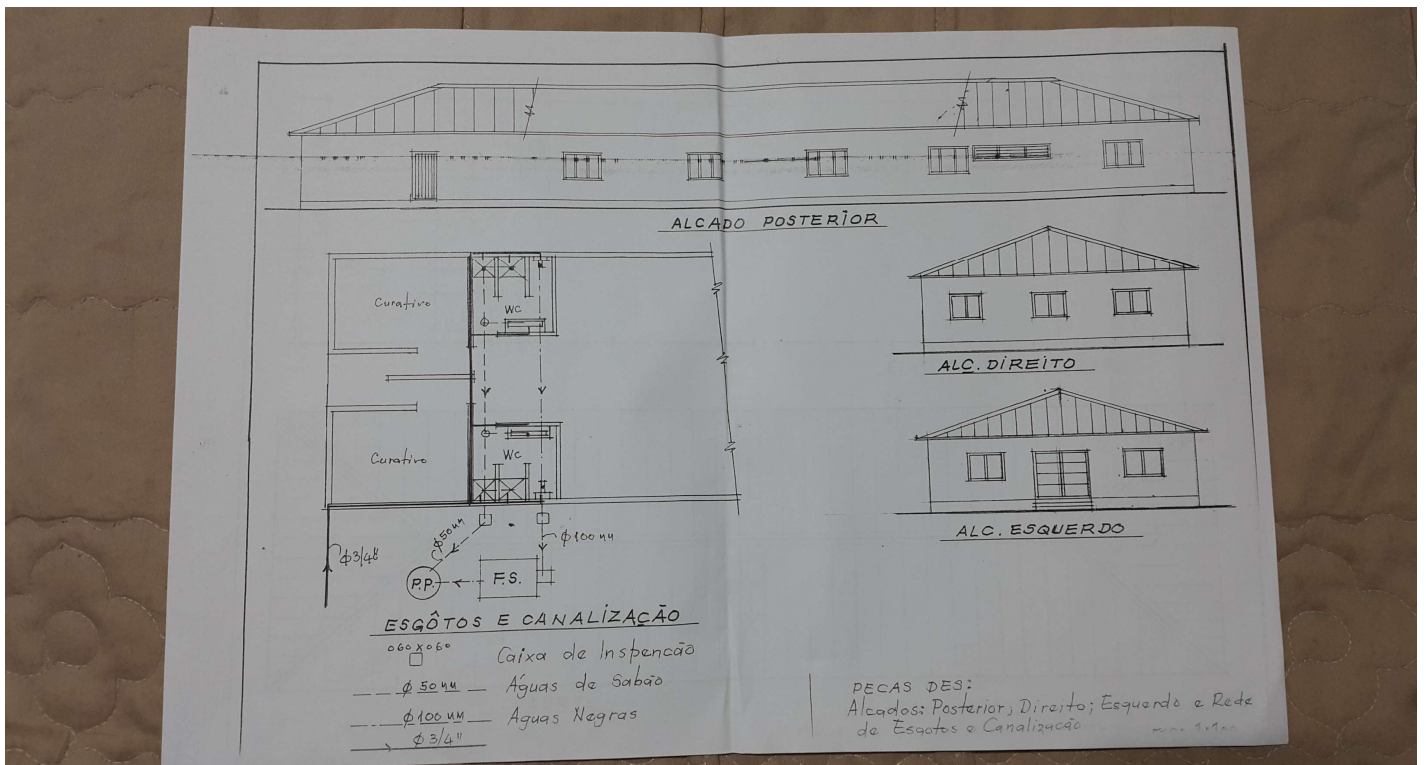 ALCADO POSTERIOR
Curativo
WC
ALC. DIREITO
Curativo
WC
ALC. ESQUERDO
ϕ50mm
ϕ100mm
ϕ3/4"
P.P.
F.S.
ESGÔTOS E CANALIZAÇÃO
060x060
Caixa de Inspencão
ϕ 50mm Águas de Sabão
ϕ100mm Aguas Negras
ϕ3/4"
PECAS DES:
Alcados: Posterior, Direito; Esquerdo e Rede
de Esgotos e Canalização